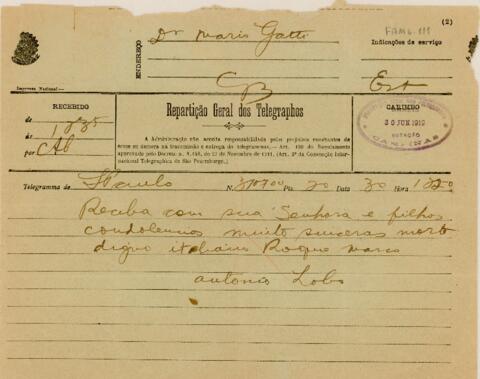 FAM6.111
(2)
Dr Mario Gatti
ENDEREÇO
Indicações de serviço
CB
Est
Imprensa Nacional
RECEBIDO
de
ás 1235
por
Repartição Geral dos Telegraphos
A Administração não aceita responsabilidade pelos prejuizos resultantes de
erros ou demora na transmissão e entrega de telegrammas,— Art. do Regulamento
approvado pelo Decreto n. de de Novembro de 1911. (Art. 3º da Convenção Inter-
nacional Telegraphica de São Petersburgo.)
CARIMBO
30 JUN 1919
ESTAÇÃO
CAMPINAS
Telegramma de S Paulo N. Pls. 20 Data 30 Hora
Receba com sua Senhora e filhos
condolencias muito sinceras morte
digno italiano Roque Marco
Antonio Lobo